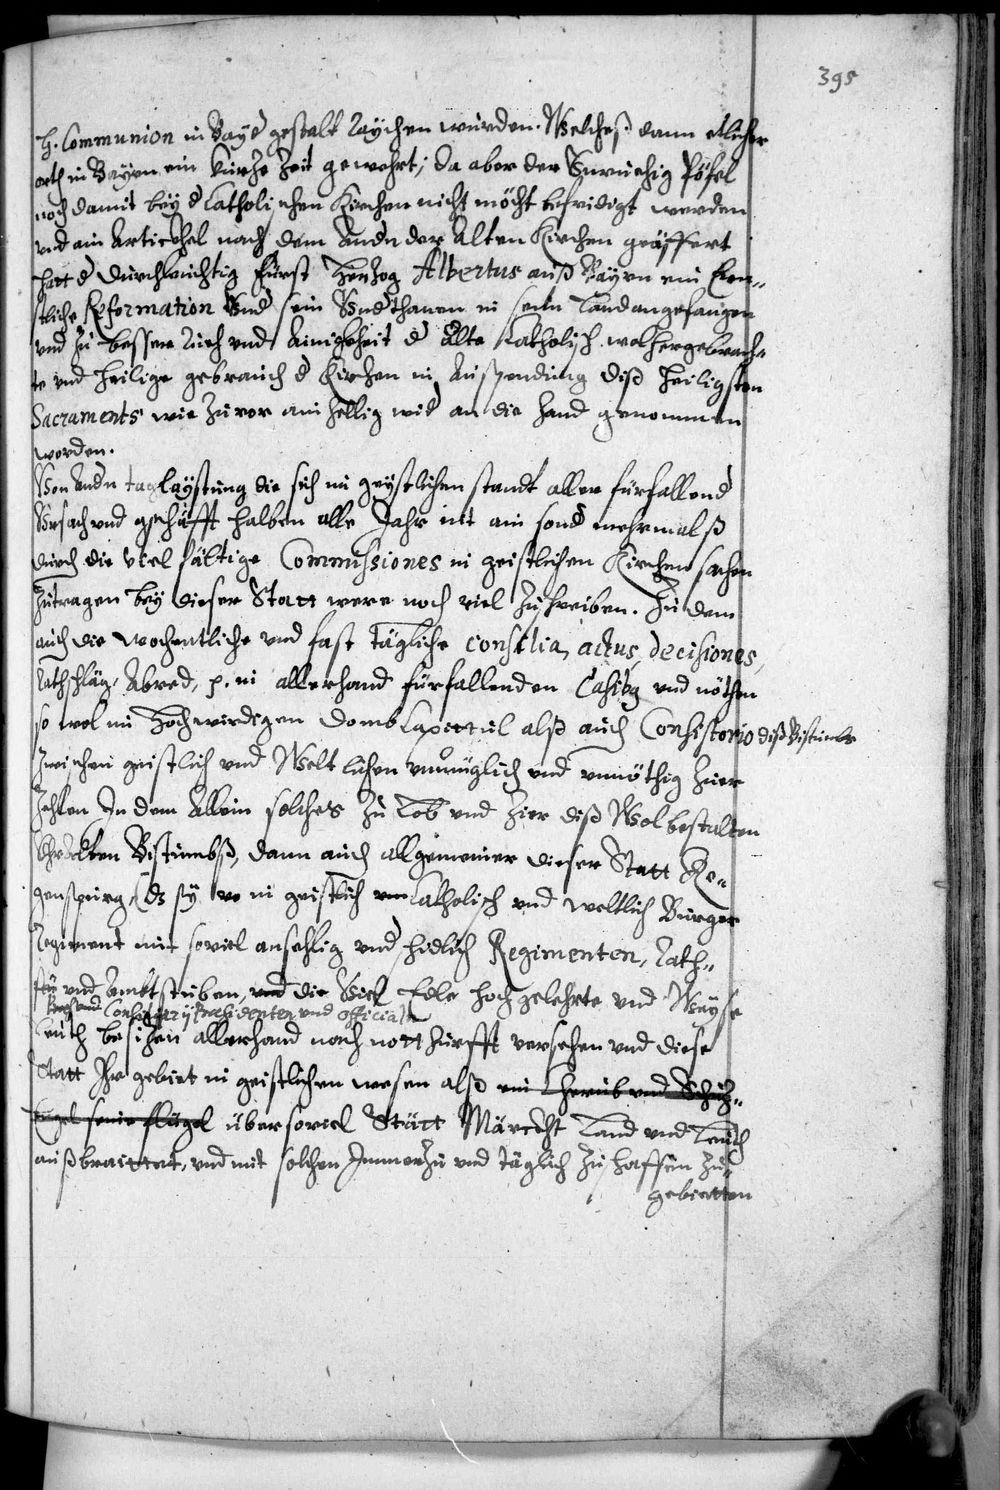 395
H. Communion in Bayd gestalt raychen wurden. Welcheß dann etlicher
orth in Bayrn ein kurtze Zeit gewehrt; da aber der Vnruehig Pöfel
noch damit bey d Catholischen Kirchen nicht möcht befridigt werden
vnd ain Artickhel nach dem Andn der Alten Kirchen geäffert
hatt d Durchleuchtig Fürst Hertzog Albertus auß Bayrn ein Ern-
stliche Reformation Vnd sein Vndthanen in seim Land angefangen
vnd zu besserer Rueh vnd Ainigkheit d Alte Katholisch wolhergebrach-
te vnd Heilige gebrauch d Kirchen in Außspendung diß Heiligsten
Sacraments wie zuvor ainhellig wid an die Hand genommen
worden.
Von Andn taglaystung die sich im geystlichen standt aller fürfallend
Vrsach vnd gschäfft halben alle Jahr nit ain sond mehrmalß
durch die viel fältige Commissiones in geistlichen Kirchen sachen
zutragen bey dieser Statt were noch viel zuschreiben. Zu dem
auch die wochentliche vnd fast tägliche consilia, actus, decisiones,
Rathschläg, Abred, p. in allerhand fürfallenden Casibg vnd nöthen
so wol im Hochwirdigen Domb Capittul alß auch Consistorio diß Bistumbs
zwischen geistlich vnd Weltlichen vnmüglich vnd vnnöthig hier
Zehlen In dem Allein solches zu Lob vnd Zier diß Wolbestalten
Vhralten Bistumbß, dann auch allgemeiner dieser Statt Re-
genspurg, ds sy in geistlich Catholisch vnd weltlich Burger
Regiment mit soviel ansehlig vnd fridlich Regimenten, Rath-
stu vnd Ambtstuben, vnd die Viel Edle Hochgelehrte vnd Wayse
Consistory Praesidenten vnd Official
Leuth besitzen allerhand nach notthurfft versehen vnd diese
Statt Ihr gebiet in geistlichen wesen alß ein Cherub vnd Schutz-
Engel seine flügel über soviel Stätt Märckht Land vnd Leuth
außbraittet, vnd mit solchen Immerzu vnd täglich zuschaffen zu-
gebietten